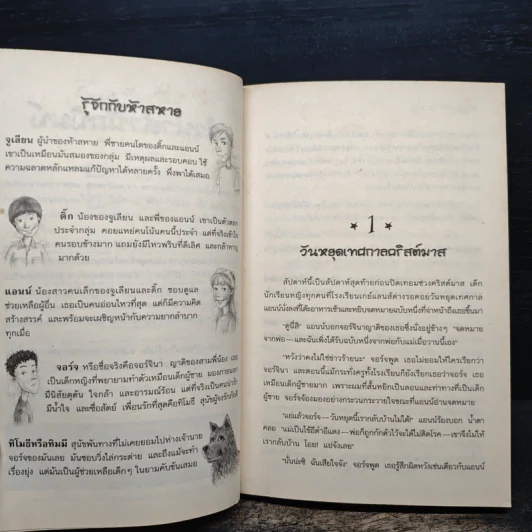 รู้จักกับห้าสหาย
จูเลียน ผู้นำของห้าสหาย พี่ชายคนโตของดิ๊กและแอนน์
เขาเป็นเหมือนมันสมองของกลุ่ม มีเหตุผลและรอบคอบ ใช้
ความฉลาดหลักแหลมแก้ปัญหาได้หลายครั้ง พึ่งพาได้เสมอ
ดิ๊ก น้องของจูเลียน และพี่ของแอนน์ เขาเป็นตัวตลก
ประจำกลุ่ม คอยแหย่คนโน้นคนนี้ประจำ แต่ที่จริงเข้าใจ
คนรอบข้างมาก แถมยังมีไหวพริบที่ดีเลิศ และกล้าหาญ
มากด้วย
แอนน์ น้องสาวคนเล็กของจูเลียนและดิ๊ก ชอบดูแล
ช่วยเหลือผู้อื่น เธอเป็นคนอ่อนไหวที่สุด แต่ก็มีความคิด
สร้างสรรค์ และพร้อมจะเผชิญหน้ากับความยากลำบาก
ทุกเมื่อ
จอร์จ หรือชื่อจริงคือจอร์จินา ญาติของสามพี่น้อง เธอ
เป็นเด็กหญิงที่พยายามทำตัวเหมือนเด็กผู้ชาย มองภายนอก
มีนิสัยดุดัน ใจกล้า และอารมณ์ร้อน แต่ที่จริงเป็นคนที่
มีน้ำใจ และซื่อสัตย์ เพื่อนรักที่สุดคือทิโมธี สุนัขผู้จงรักภักดี
ทิโมธีหรือทิมมี สุนัขพันทางที่ไม่เคยยอมไปห่างเจ้านาย
จอร์จของมันเลย มันชอบวิ่งไล่กระต่าย และถึงแม้จะทำ
เรื่องยุ่ง แต่มันเป็นผู้ช่วยเหลือเด็กๆ ในยามคับขันเสมอ
1
วันหยุดเทศกาลคริสต์มาส
สัปดาห์นี้เป็นสัปดาห์สุดท้ายก่อนปิดเทอมช่วงคริสต์มาส เด็ก
นักเรียนหญิงทุกคนที่โรงเรียนเกย์แลนส์ต่างรอคอยวันหยุดเทศกาล
แอนน์นั่งลงที่โต๊ะอาหารเช้าและหยิบจดหมายฉบับหนึ่งที่จ่าหน้าถึงเธอขึ้นมา
"ดูนี่สิ" แอนน์บอกจอร์จินาญาติของเธอซึ่งนั่งอยู่ข้างๆ "จดหมาย
จากพ่อ—และฉันเพิ่งได้รับฉบับหนึ่งจากพ่อกับแม่เมื่อวานนี้เอง"
"หวังว่าคงไม่ใช่ข่าวร้ายนะ" จอร์จพูด เธอไม่ยอมให้ใครเรียกว่า
จอร์จินา และตอนนี้แม้กระทั่งครูทั้งโรงเรียนก็ยังเรียกเธอว่าจอร์จ เธอ
เหมือนเด็กผู้ชายมาก เพราะผมที่สั้นหยิกเป็นลอนและท่าทางที่เป็นเด็ก
ผู้ชาย จอร์จจ้องมองอย่างกระวนกระวายใจขณะที่แอนน์อ่านจดหมาย
"แย่แล้วจอร์จ—วันหยุดนี้เรากลับบ้านไม่ได้!" แอนน์ร้องบอก น้ำตา
คลอ "แม่เป็นไข้อีดำอีแดง—พ่อก็ถูกกักตัวไว้จะได้ไม่ติดโรค—เขาจึงไม่ให้
เรากลับบ้าน โอย! แย่จังเลย"
"นั่นน่ะซิ ฉันเสียใจจัง" จอร์จพูด เธอรู้สึกผิดหวังเช่นเดียวกับแอนน์